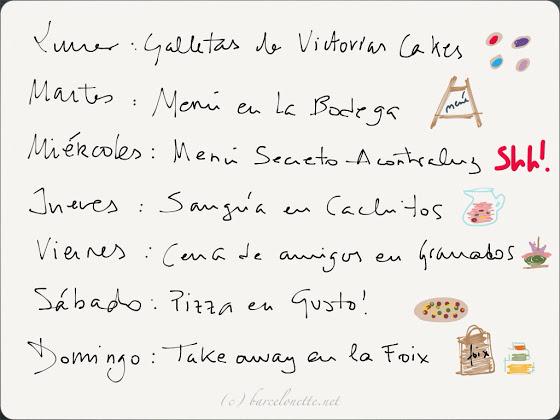 Lunes : Galletas de Victorias Cakes
Martes : Menú en La Bodega
menú
Miércoles : Menú Secreto Acontraluz Shh!
Jueves : Sangría en Cachitos
Viernes : Cena de amigos en Granados
Sábado : Pizza en Gusto!
Domingo : Take away en la Foix
foix
(c) barcelonette.net